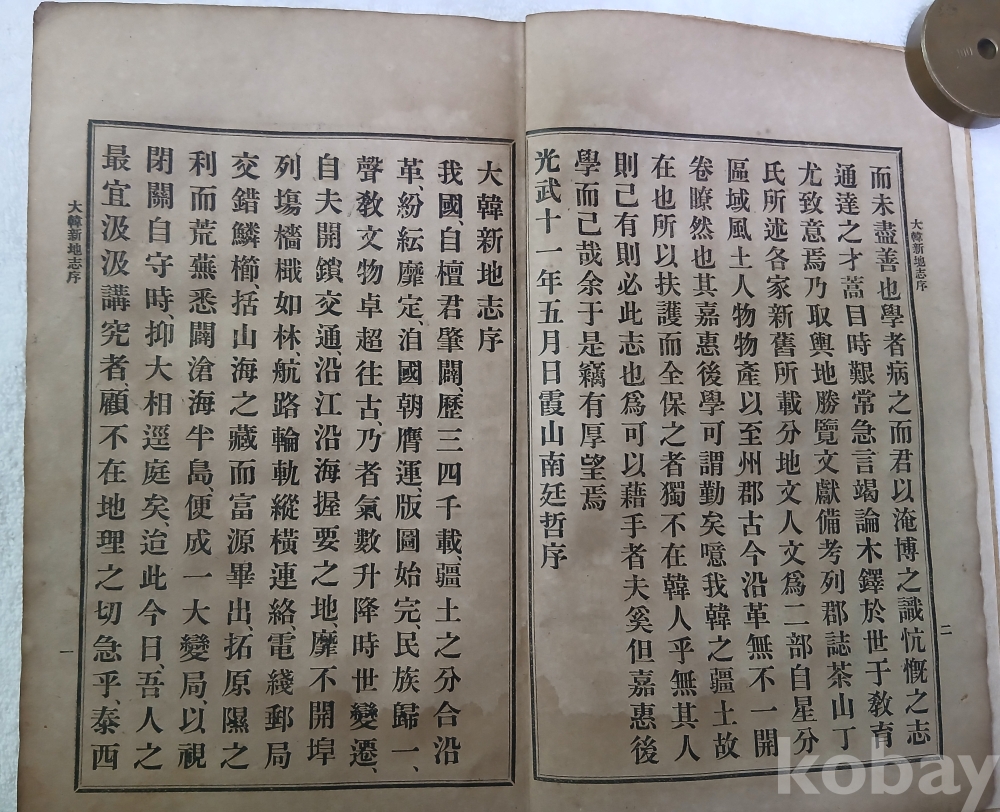 大韓新地志序
二
而未盡善也學者病之而君以淹博之識忼慨之志
通達之才蒿目時艱常急言竭論木鐸於世于敎育
尤致意焉乃取輿地勝覽文獻備考列郡誌茶山丁
氏所述各家新舊所載分地文人文爲二部自星分
區域風土人物物產以至州郡古今沿革無不一開
卷瞭然也其嘉惠後學可謂勤矣噫我韓之疆土故
在也所以扶護而全保之者獨不在韓人乎無其人
則已有則必此志也爲可以藉手者夫奚但嘉惠後
學而已哉余于是竊有厚望焉
光武十一年五月日霞山南廷哲序
大韓新地志序
我國、自檀君肇闢、歷三四千載、疆土之分合沿
革、紛紜靡定、洎國朝膺運、版圖始完、民族歸一、
聲敎文物卓超往古、乃者氣數升降時世變遷、
自夫開鎖交通、沿江沿海握要之地、靡不開埠
列塲檣檝如林、航路輪軌縱橫連絡、電綫郵局
交錯鱗櫛、括山海之藏而富源畢出、拓原隰之
利而荒蕪悉闢滄海半島、便成一大變局、以視
閉關自守時、抑大相逕庭矣、迨此今日、吾人之
最宜汲汲講究者、顧不在地理之切急乎、泰西
大韓新地志序
一
kobay